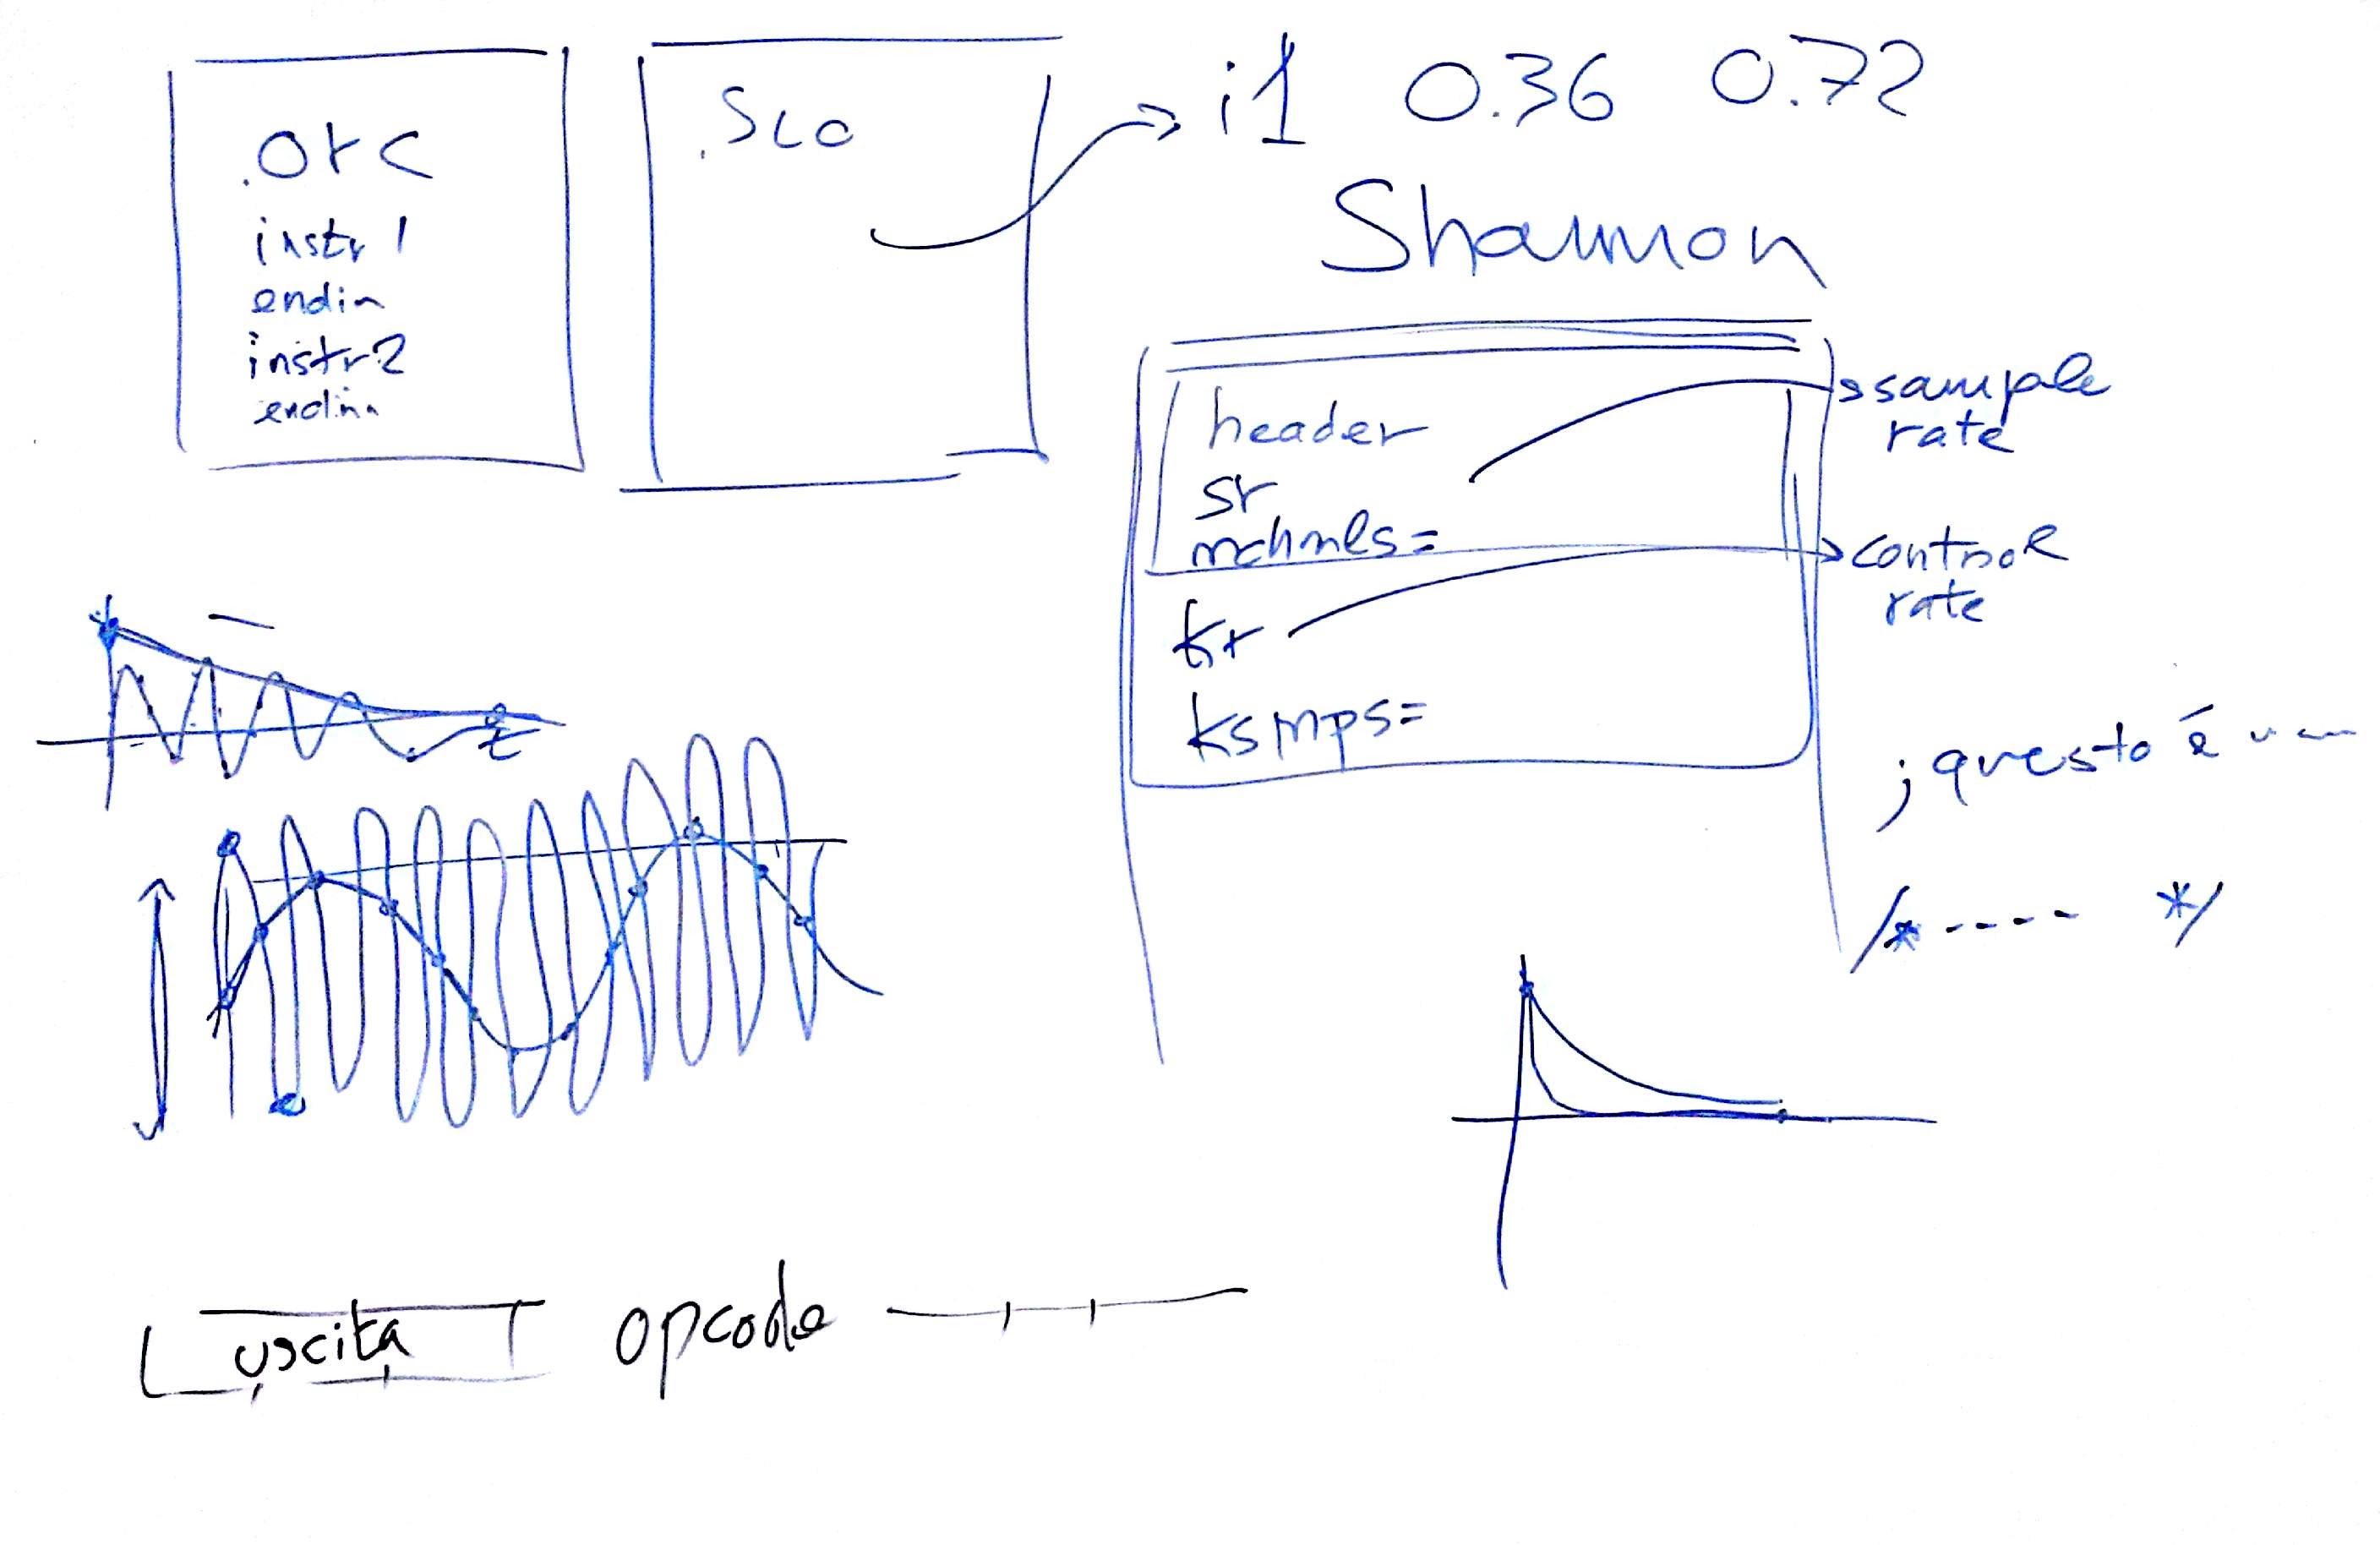 .orc
instr 1
endin
instr 2
endin
.sco
i1 0.36 0.72
Shannon
header
sr
nchnls=
kr
ksmps=
sample
rate
control
rate
;questo è un
/*---- */
t
uscita opcode